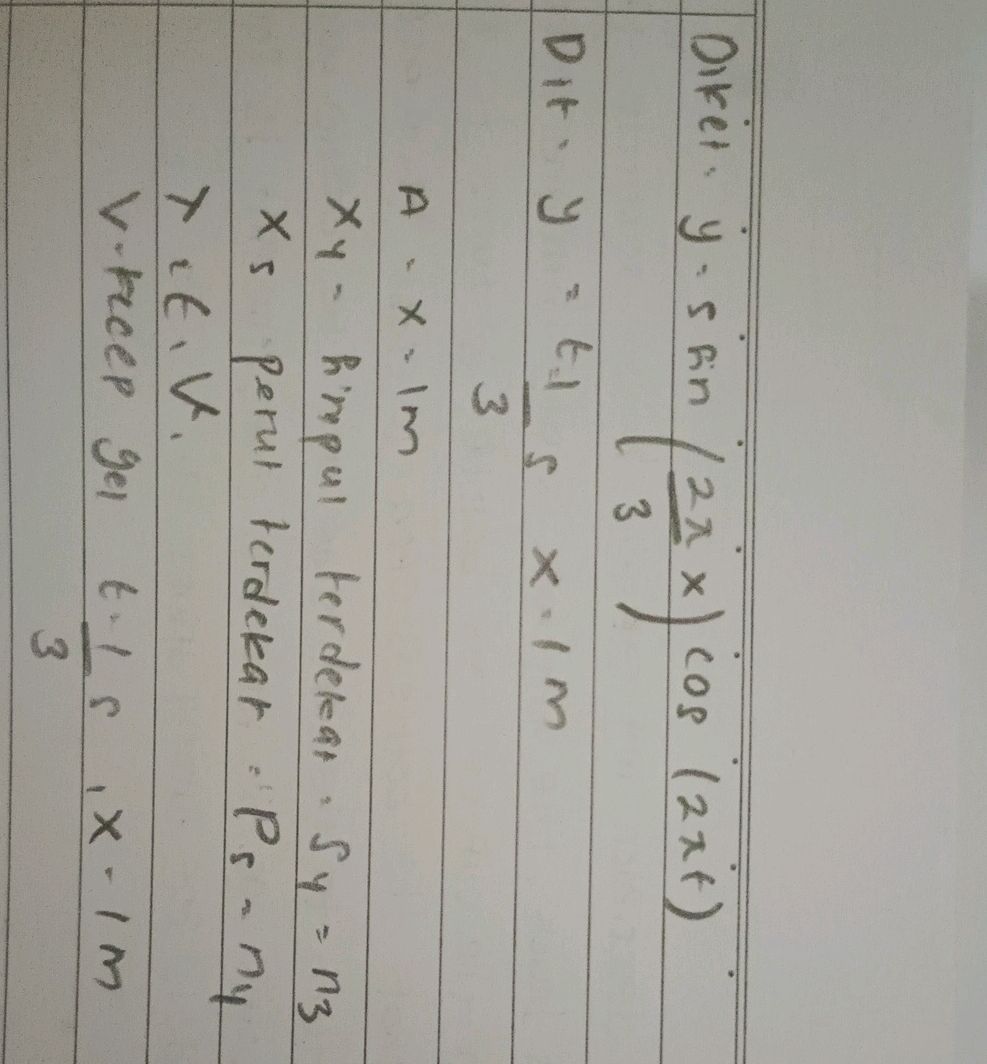 Diket. y = sin (2π/3 x) cos (2πt)
Dit. y = t = 1/3 s x = 1 m
A = x = 1m
X4 = simpul terdekat = S4 = n3
X5 perut terdekat = P5 = n4
λ, t, V.
V = kecep gel t = 1/3 s, x = 1 m